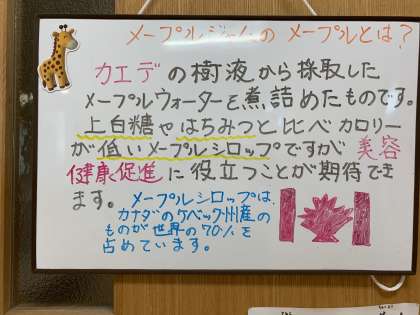 メープルジャムの メープルとは?
カエデの樹液から採取した
メープルウォーターを煮詰めたものです。
上白糖やはちみつと比べカロリー
が低いメープルシロップですが 美容
健康促進に役立つことが期待でき
ます。
メープルシロップは、
カナダのケベック州産の
ものが世界の70%を
占めています。